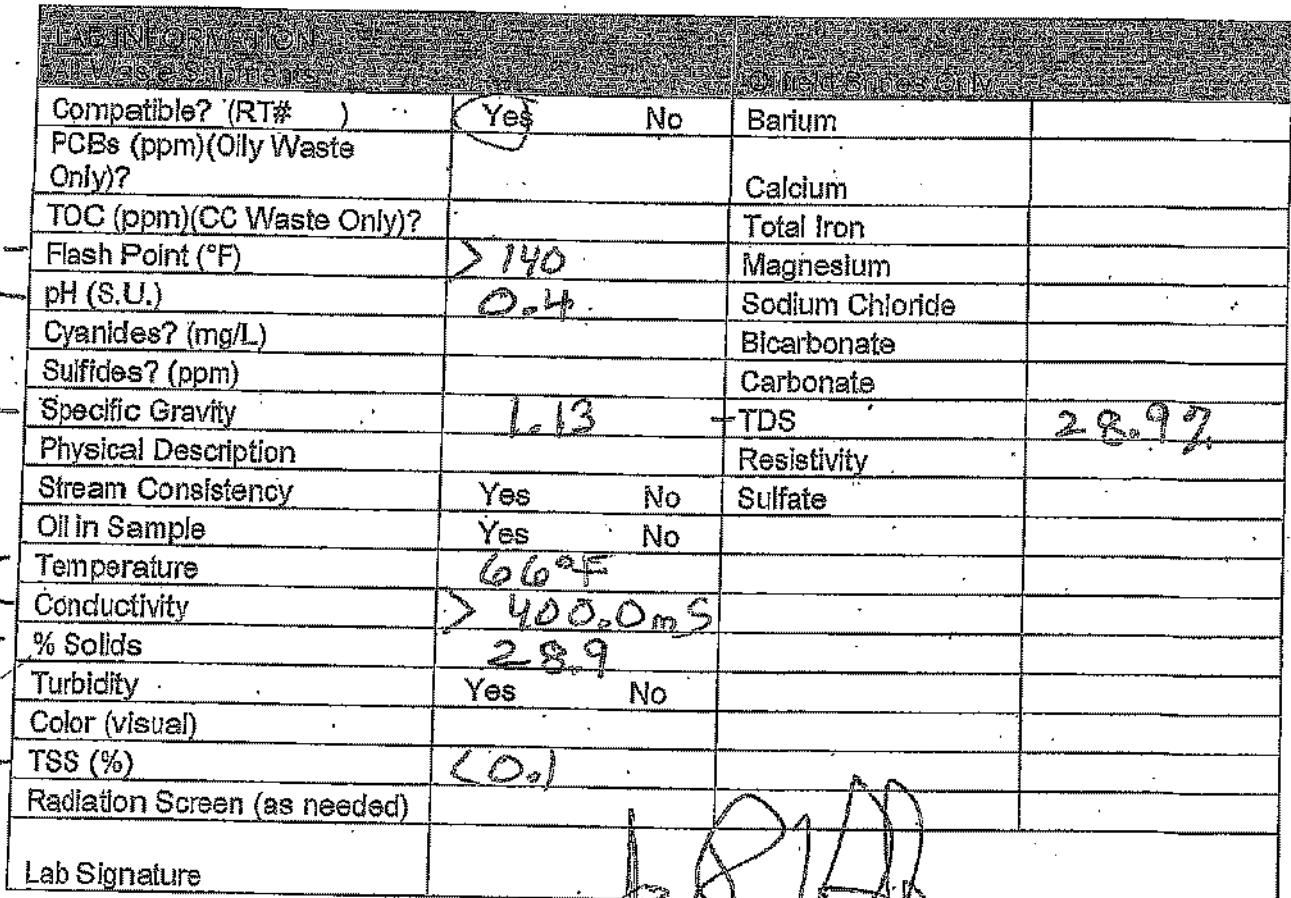 LAB INFORMATION
All Waste Shipments Oilfield Brines Only
Compatible? (RT# ) Yes No Barium
PCBs (ppm)(Oily Waste
Only)? Calcium
TOC (ppm)(CC Waste Only)? Total Iron
Flash Point (°F) > 140 Magnesium
pH (S.U.) 0.4 Sodium Chloride
Cyanides? (mg/L) Bicarbonate
Sulfides? (ppm) Carbonate
Specific Gravity 1.13 TDS 28.9%
Physical Description Resistivity
Stream Consistency Yes No Sulfate
Oil in Sample Yes No
Temperature 66°F
Conductivity > 400.0 mS
% Solids 28.9
Turbidity Yes No
Color (visual)
TSS (%) <0.1
Radiation Screen (as needed)
Lab Signature